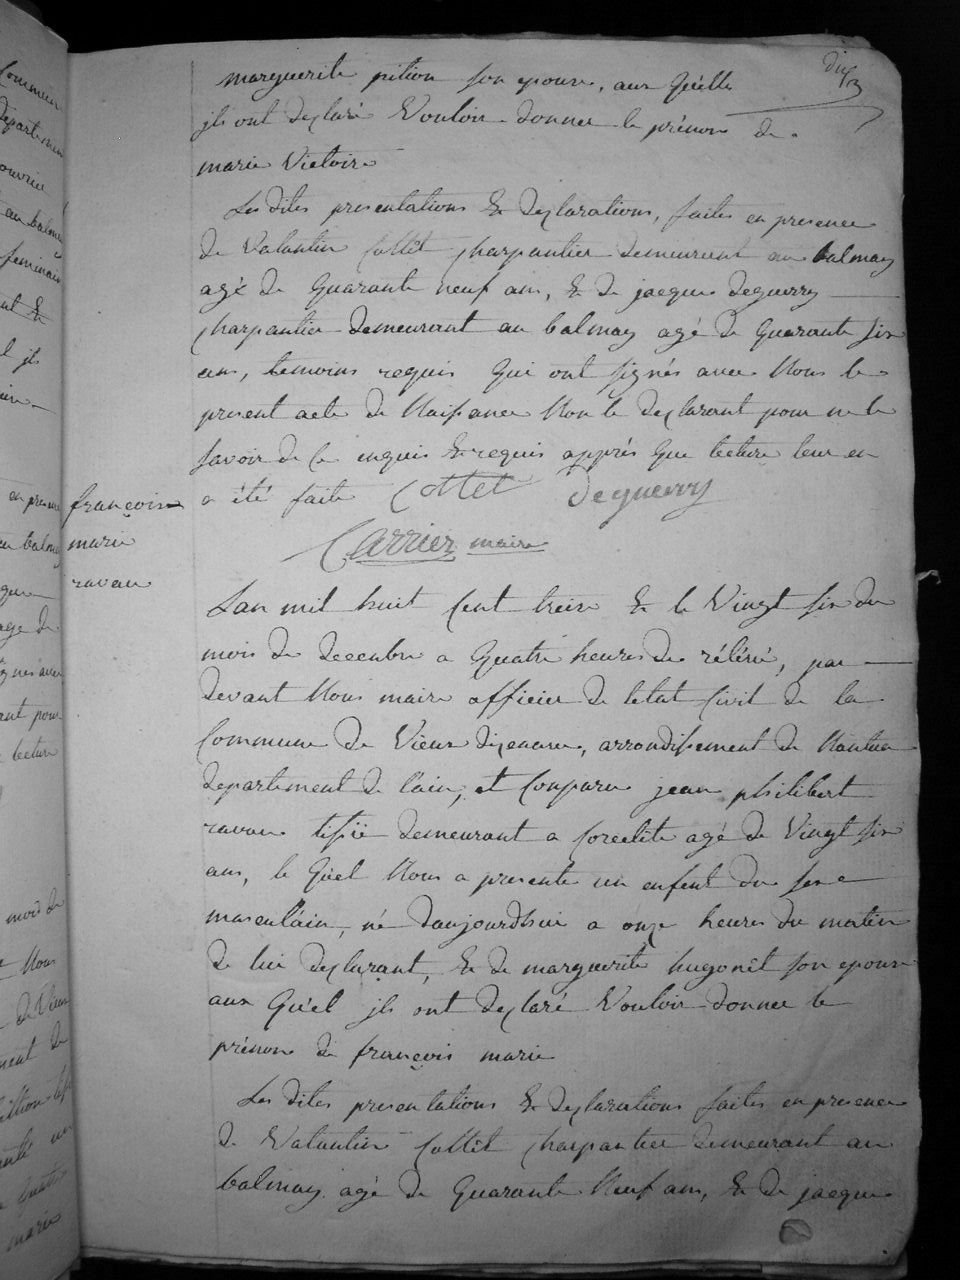 marguerite pition son epouse, aux quélle
jls ont declaré vouloir donner le prénom de
marie victoire
Les dites presentations & declarations, faites en presence
de valantin Collet charpantier demeurant au balmay
agé de quarante neuf ans, & de jacque deguerry
charpantier demeurant au balmay agé de quarante six
ans, temoins requis qui ont signés avec nous le
present acte de naissance non le declarant pour ne le
savoir de ce enquis & requis apprés que lecture leur en
a été faite Cottet Deguerry
Carrier maire
françois
marie
ravau
Lan mil huit cent treize & le vingt six du
mois de decembre a quatre heures de rélévé, par
devant nous maire officier de letat civil de la
commune de vieux dizenave, arrondissement de nantua
departement de lain, et comparu jean philibert
ravau demeurant a corcelite agé de vingt six
ans, le quel nous a presenté un enfent du sexe
masculain, né daujourdhui a onze heures du matin
de lui declarant, & de marguerite hugonét son epouse
aux quél jls ont declaré vouloir donner le
prénom de françois marie
Les dites presentations & declarations faites en presence
de valantin Collet charpantier demeurant au
balmay agé de quarante neuf ans, & de jacque